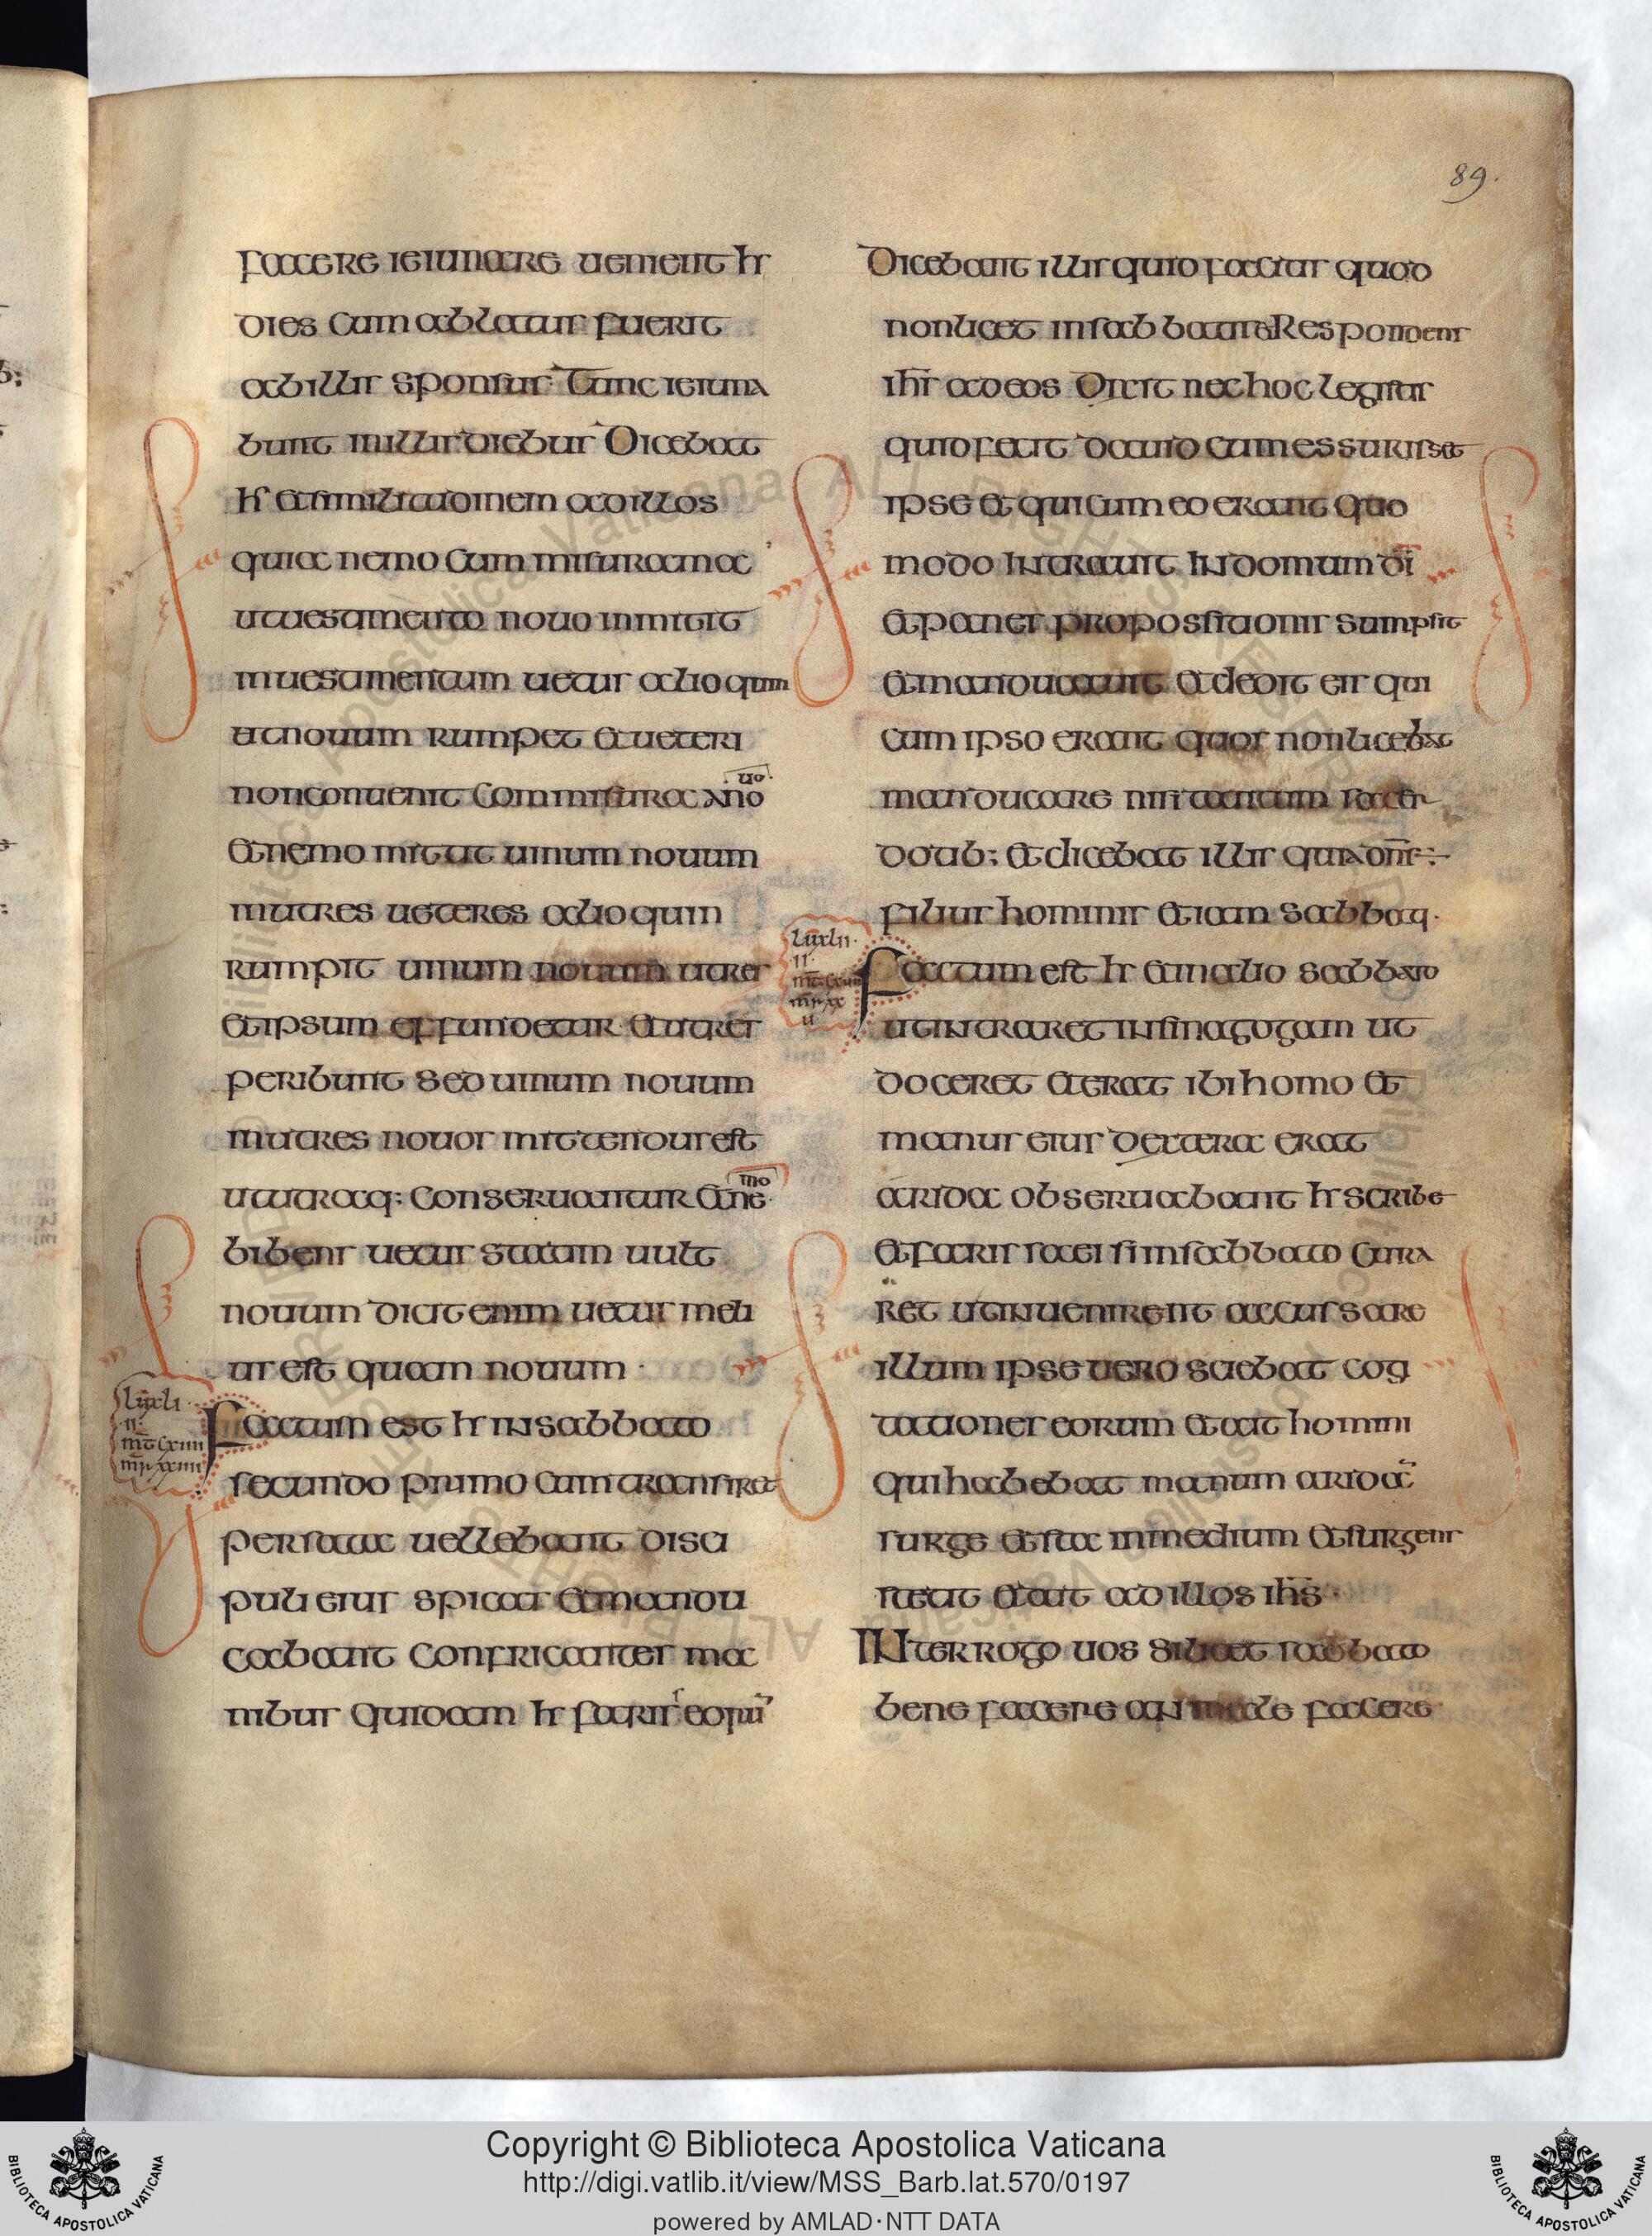 89.
facere ieiunare uenient hr
dies cum ablatus fuerit
ab illis sponsus Tunc ieiuna
bunt in illis diebus Dicebat
hr et similitudinem ad illos
quia nemo commisuram a
uestimento nouo inmittit
in uestimentum uetus alioquin
et nouum rumpet et ueteri
non conuenit commisura a no
uo
et nemo mittit uinum nouum
in utres ueteres alioquin
rumpit uinum nouum utres
et ipsum effundetur et utres
peribunt sed uinum nouum
in utres nouos mittendus est
ut utraq; conseruantur et ne
mo
bibens uetus statim uult
nouum dicit enim uetus meli
us est quam nouum
lu xli
ii
mt cxiiii
mr xxiiii
Factum est hr in sabbato
secundo primo cum transiret
per sata uellebant disci
puli eius spicas et mandu
cabant confricantes ma
nibus Quidam hr fariseorū
Dicebant illis quid facitis quod
non licet in sabbatis Respondens
ihs ad eos Dixit nec hoc legistis
quid fecit dauid cum essurisset
ipse et qui cum eo erant quo
modo intrauit in domum di
et panes propositionis sumpsit
et manducauit et dedit eis qui
cum ipso erant quos non licebat
manducare nisi tantum sacer
dotib; et dicebat illis quia dns
filius hominis etiam sabbati
lu xlii
ii
mt cxui
mr xx
u
Factum est hr et in alio sabbato
ut intraret in sinagogam ut
doceret et erat ibi homo et
manus eius dextera erat
arida obseruabant hr scribe
et farissaei si in sabbato cura
ret ut inuenirent accussare
illum ipse uero sciebat cog
tationes eorum et ait homini
qui habebat manum aridā
surge et sta in medium et surgens
stetit et ait ad illos ihs
Interrogo uos si licet sabbato
bene facere an male facere
Copyright © Biblioteca Apostolica Vaticana
http://digi.vatlib.it/view/MSS_Barb.lat.570/0197
powered by AMLAD·NTT DATA
BIBLIOTECA APOSTOLICA VATICANA
BIBLIOTECA APOSTOLICA VATICANA